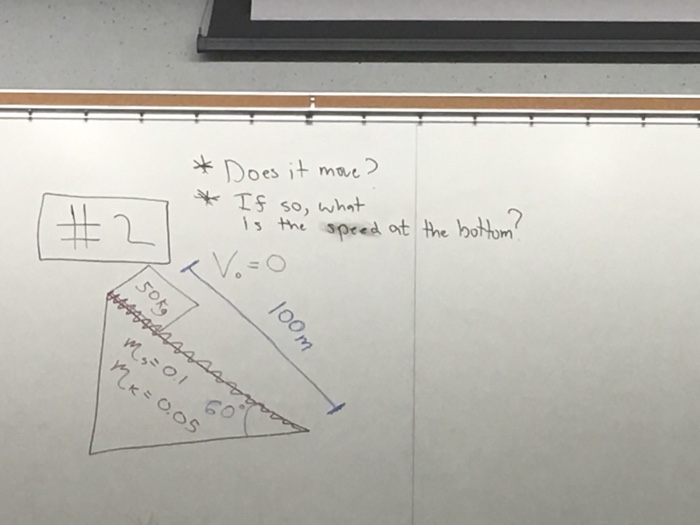 * Does it move?
* If so, what
is the speed at the bottom?
#2
V₀=0
50kg
100m
m_s=0.1
m_k=0.05
60°